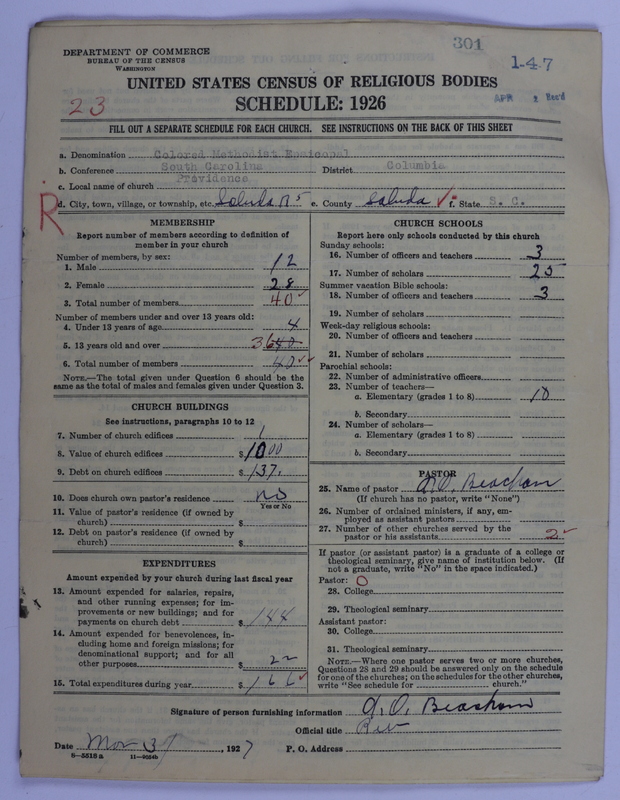 301
1-4-7
DEPARTMENT OF COMMERCE
BUREAU OF THE CENSUS
WASHINGTON
UNITED STATES CENSUS OF RELIGIOUS BODIES
SCHEDULE: 1926
23
APR 2 Rec'd
FILL OUT A SEPARATE SCHEDULE FOR EACH CHURCH. SEE INSTRUCTIONS ON THE BACK OF THIS SHEET
a. Denomination Colored Methodist Episcopal
b. Conference South Carolina District Columbia
c. Local name of church Providence
R
d. City, town, village, or township, etc. Saluda R 5 e. County Saluda f. State S. C.
MEMBERSHIP
Report number of members according to definition of
member in your church
Number of members, by sex:
1. Male 12
2. Female 28
3. Total number of members 40
Number of members under and over 13 years old:
4. Under 13 years of age 4
5. 13 years old and over 36 40
6. Total number of members 40
NOTE.—The total given under Question 6 should be the
same as the total of males and females given under Question 3.
CHURCH BUILDINGS
See instructions, paragraphs 10 to 12
7. Number of church edifices 1
8. Value of church edifices $1000
9. Debt on church edifices $137.
10. Does church own pastor's residence no
Yes or No
11. Value of pastor's residence (if owned by
church) $
12. Debt on pastor's residence (if owned by
church) $
EXPENDITURES
Amount expended by your church during last fiscal year
13. Amount expended for salaries, repairs,
and other running expenses; for im-
provements or new buildings; and for
payments on church debt $144
14. Amount expended for benevolences, in-
cluding home and foreign missions; for
denominational support; and for all
other purposes $22
15. Total expenditures during year $166
CHURCH SCHOOLS
Report here only schools conducted by this church
Sunday schools:
16. Number of officers and teachers 3
17. Number of scholars 25
Summer vacation Bible schools:
18. Number of officers and teachers 3
19. Number of scholars
Week-day religious schools:
20. Number of officers and teachers
21. Number of scholars
Parochial schools:
22. Number of administrative officers
23. Number of teachers—
a. Elementary (grades 1 to 8) 10
b. Secondary
24. Number of scholars—
a. Elementary (grades 1 to 8)
b. Secondary
PASTOR
25. Name of pastor Beacham
(If church has no pastor, write "None")
26. Number of ordained ministers, if any, em-
ployed as assistant pastors
27. Number of other churches served by the
pastor or his assistants 2
If pastor (or assistant pastor) is a graduate of a college or
theological seminary, give name of institution below. (If
not a graduate, write "No" in the space indicated.)
Pastor: 0
28. College
29. Theological seminary
Assistant pastor:
30. College
31. Theological seminary
NOTE.—Where one pastor serves two or more churches,
Questions 28 and 29 should be answered only on the schedule
for one of the churches; on the schedules for the other churches,
write "See schedule for church."
Signature of person furnishing information Beacham
Official title Rev
Date Mar 31, 1927 P. O. Address
8—5518a 11—9054b